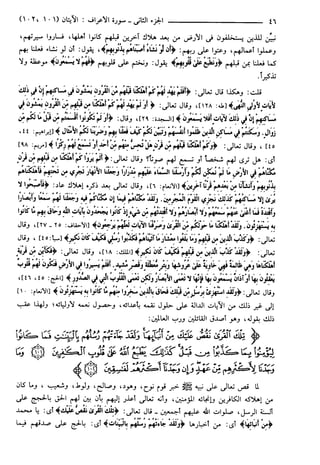 ٤٦ الجزء الثاني - سورة الأعراف: الآيتان (١٠١، ١٠٢)
نبيّن للذين يستخلفون في الأرض من بعد هلاك آخرين قبلهم كانوا أهلها، فساروا سيرتهم،
وعملوا أعمالهم، وعتوا على ربهم: ﴿أَن لَّوْ نَشَاءُ أَصَبْنَاهُم بِذُنُوبِهِمْ﴾، يقول: أن لو نشاء فعلنا بهم
كما فعلنا بمن قبلهم ﴿وَنَطْبَعُ عَلَى قُلُوبِهِمْ﴾ يقول: ونختم على قلوبهم ﴿فَهُمْ لَا يَسْمَعُونَ﴾ موعظة ولا
تذكيراً.
قلت: وهكذا قال تعالى: ﴿أَفَلَمْ يَهْدِ لَهُمْ كَمْ أَهْلَكْنَا قَبْلَهُم مِّنَ الْقُرُونِ يَمْشُونَ فِي مَسَاكِنِهِمْ إِنَّ فِي ذَلِكَ
لَآيَاتٍ لِّأُولِي النُّهَى﴾ [طه: ١٢٨]، وقال تعالى: ﴿أَوَلَمْ يَهْدِ لَهُمْ كَمْ أَهْلَكْنَا مِن قَبْلِهِم مِّنَ الْقُرُونِ يَمْشُونَ فِي
مَسَاكِنِهِمْ إِنَّ فِي ذَلِكَ لَآيَاتٍ أَفَلَا يَسْمَعُونَ﴾ [السجدة: ٢٦]، وقال: ﴿أَوَلَمْ تَكُونُوا أَقْسَمْتُم مِّن قَبْلُ مَا لَكُم مِّن
زَوَالٍ. وَسَكَنتُمْ فِي مَسَاكِنِ الَّذِينَ ظَلَمُوا أَنفُسَهُمْ وَتَبَيَّنَ لَكُمْ كَيْفَ فَعَلْنَا بِهِمْ وَضَرَبْنَا لَكُمُ الْأَمْثَالَ﴾ [إبراهيم: ٤٤،
٤٥]، وقال تعالى: ﴿وَكَمْ أَهْلَكْنَا قَبْلَهُم مِّن قَرْنٍ هَلْ تُحِسُّ مِنْهُم مِّنْ أَحَدٍ أَوْ تَسْمَعُ لَهُمْ رِكْزًا﴾ [مريم: ٩٨]
أي: هل ترى لهم شخصاً أو تسمع لهم صوتاً؟ وقال تعالى: ﴿أَلَمْ يَرَوْا كَمْ أَهْلَكْنَا مِن قَبْلِهِم مِّن قَرْنٍ
مَّكَّنَّاهُمْ فِي الْأَرْضِ مَا لَمْ نُمَكِّن لَّكُمْ وَأَرْسَلْنَا السَّمَاءَ عَلَيْهِم مِّدْرَارًا وَجَعَلْنَا الْأَنْهَارَ تَجْرِي مِن تَحْتِهِمْ فَأَهْلَكْنَاهُم
بِذُنُوبِهِمْ وَأَنشَأْنَا مِن بَعْدِهِمْ قَرْنًا آخَرِينَ﴾ [الأنعام: ٦]، وقال تعالى بعد ذكره إهلاك عاد: ﴿فَأَصْبَحُوا لَا
يُرَى إِلَّا مَسَاكِنُهُمْ كَذَلِكَ نَجْزِي الْقَوْمَ الْمُجْرِمِينَ. وَلَقَدْ مَكَّنَّاهُمْ فِيمَا إِن مَّكَّنَّاكُمْ فِيهِ وَجَعَلْنَا لَهُمْ سَمْعًا وَأَبْصَارًا
وَأَفْئِدَةً فَمَا أَغْنَى عَنْهُمْ سَمْعُهُمْ وَلَا أَبْصَارُهُمْ وَلَا أَفْئِدَتُهُم مِّن شَيْءٍ إِذْ كَانُوا يَجْحَدُونَ بِآيَاتِ اللَّهِ وَحَاقَ بِهِم مَّا كَانُوا
بِهِ يَسْتَهْزِئُونَ. وَلَقَدْ أَهْلَكْنَا مَا حَوْلَكُم مِّنَ الْقُرَى وَصَرَّفْنَا الْآيَاتِ لَعَلَّهُمْ يَرْجِعُونَ﴾ [الأحقاف: ٢٥ - ٢٧]، وقال
تعالى: ﴿وَكَذَّبَ الَّذِينَ مِن قَبْلِهِمْ وَمَا بَلَغُوا مِعْشَارَ مَا آتَيْنَاهُمْ فَكَذَّبُوا رُسُلِي فَكَيْفَ كَانَ نَكِيرِ﴾ [سبأ: ٤٥]، وقال
تعالى: ﴿وَلَقَدْ كَذَّبَ الَّذِينَ مِن قَبْلِهِمْ فَكَيْفَ كَانَ نَكِيرِ﴾ [الملك: ١٨]، وقال تعالى: ﴿فَكَأَيِّن مِّن قَرْيَةٍ
أَهْلَكْنَاهَا وَهِيَ ظَالِمَةٌ فَهِيَ خَاوِيَةٌ عَلَى عُرُوشِهَا وَبِئْرٍ مُّعَطَّلَةٍ وَقَصْرٍ مَّشِيدٍ. أَفَلَمْ يَسِيرُوا فِي الْأَرْضِ فَتَكُونَ لَهُمْ قُلُوبٌ
يَعْقِلُونَ بِهَا أَوْ آذَانٌ يَسْمَعُونَ بِهَا فَإِنَّهَا لَا تَعْمَى الْأَبْصَارُ وَلَكِن تَعْمَى الْقُلُوبُ الَّتِي فِي الصُّدُورِ﴾ [الحج: ٤٥، ٤٦]،
وقال تعالى: ﴿وَلَقَدِ اسْتُهْزِئَ بِرُسُلٍ مِّن قَبْلِكَ فَحَاقَ بِالَّذِينَ سَخِرُوا مِنْهُم مَّا كَانُوا بِهِ يَسْتَهْزِئُونَ﴾ [الأنعام: ١٠]
إلى غير ذلك من الآيات الدالة على حلول نقمه بأعدائه، وحصول نعمه لأوليائه؛ ولهذا عقب
ذلك بقوله، وهو أصدق القائلين ورب العالمين:
﴿تِلْكَ الْقُرَى نَقُصُّ عَلَيْكَ مِنْ أَنبَائِهَا وَلَقَدْ جَاءَتْهُمْ رُسُلُهُم بِالْبَيِّنَاتِ فَمَا كَانُوا
لِيُؤْمِنُوا بِمَا كَذَّبُوا مِن قَبْلُ كَذَلِكَ يَطْبَعُ اللَّهُ عَلَى قُلُوبِ الْكَافِرِينَ ﴿١٠١﴾ وَمَا
وَجَدْنَا لِأَكْثَرِهِم مِّنْ عَهْدٍ وَإِن وَجَدْنَا أَكْثَرَهُمْ لَفَاسِقِينَ ﴿١٠٢﴾﴾
لما قص تعالى على نبيه ﷺ خبر قوم نوح، وهود، وصالح، ولوط، وشعيب، وما كان
من إهلاكه الكافرين وإنجائه المؤمنين، وأنه تعالى أعذر إليهم بأن بين لهم الحق بالحجج على
ألسنة الرسل، صلوات الله عليهم أجمعين - قال تعالى: ﴿تِلْكَ الْقُرَى نَقُصُّ عَلَيْكَ﴾ أي: يا محمد
﴿مِنْ أَنبَائِهَا﴾ أي: من أخبارها ﴿وَلَقَدْ جَاءَتْهُمْ رُسُلُهُم بِالْبَيِّنَاتِ﴾ أي: بالحجج على صدقهم فيما